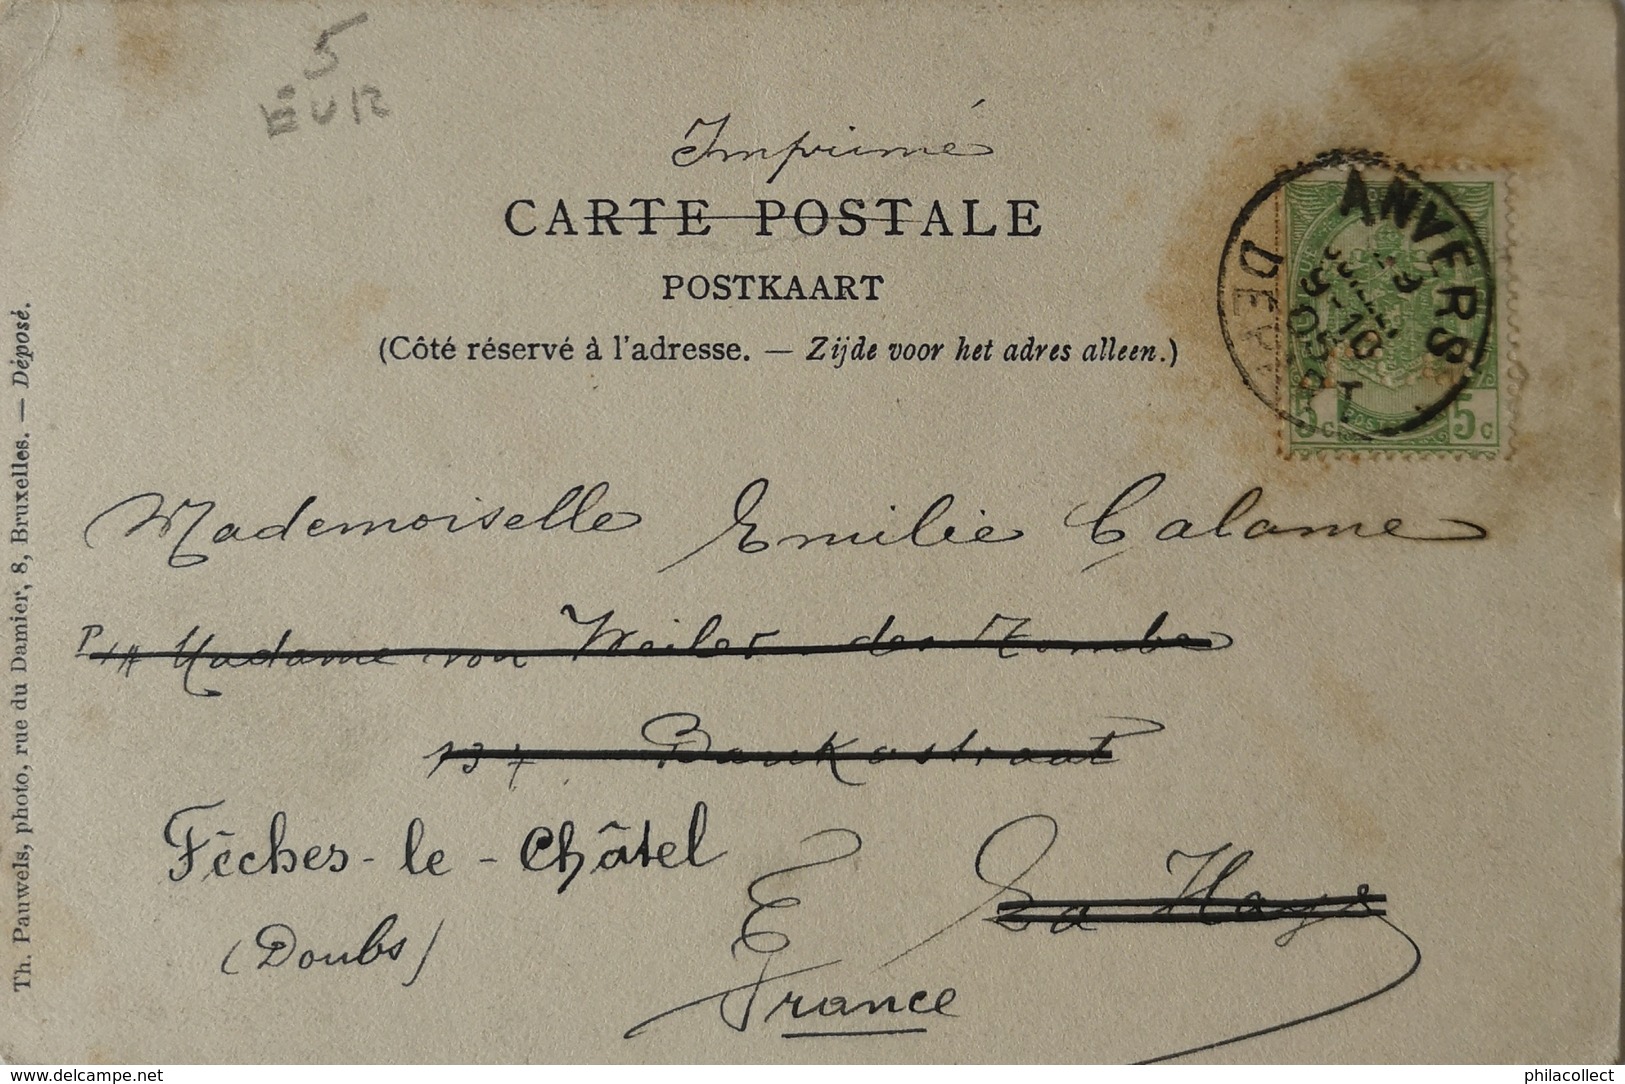 5
EUR
Imprimé
CARTE POSTALE
POSTKAART
(Côté réservé à l'adresse. — Zijde voor het adres alleen.)
ANVERS
DEPART
5c 5c
Mademoiselle Emilie Calame
Madame von Weiler
137 Bankastraat
La Haye
Fêches-le-Châtel
(Doubs)
France
Th. Pauwels, photo, rue du Damier, 8, Bruxelles. — Déposé.
delcampe.net
philacollect